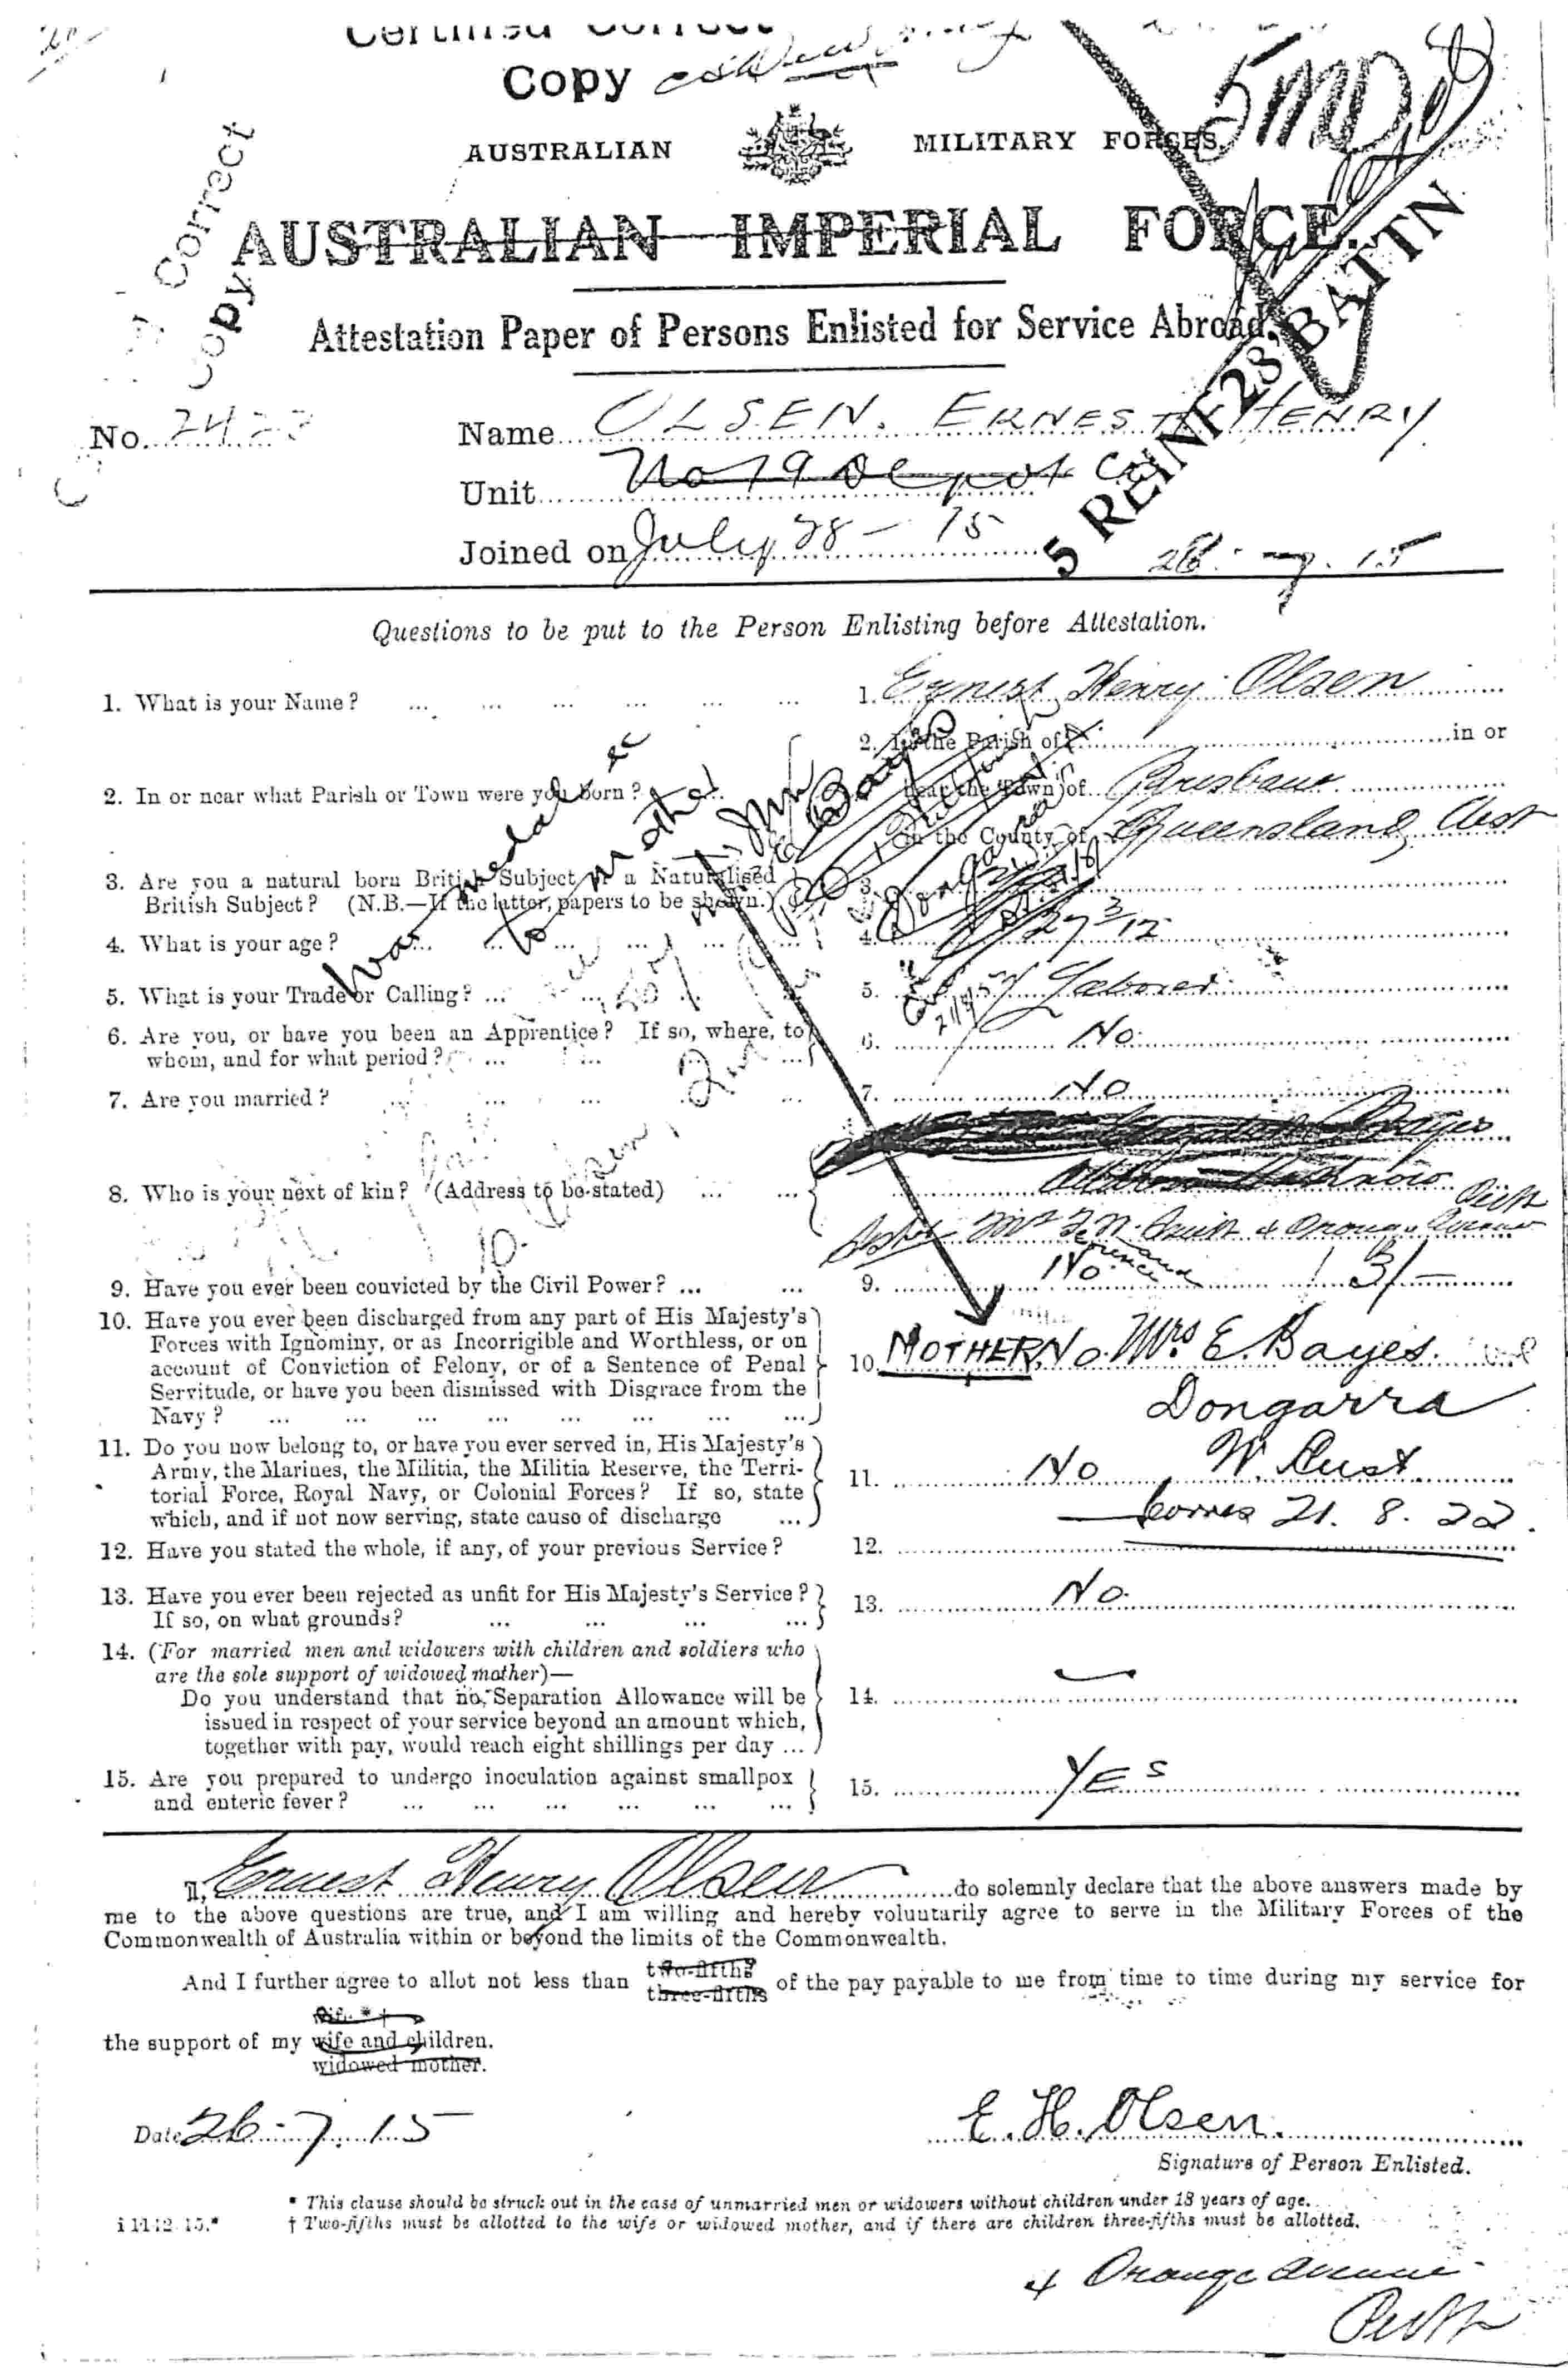 Certified Correct
Copy
AUSTRALIAN MILITARY FORCES.
5 MD
Correct
Copy
AUSTRALIAN IMPERIAL FORCE.
Attestation Paper of Persons Enlisted for Service Abroad.
5 REINF 28 BATTN
No. 24
Name OLSEN. ERNEST HENRY
Unit No 19 Depot Coy
Joined on July 28 - 15
28. 7. 15
Questions to be put to the Person Enlisting before Attestation.
1. What is your Name? ... 1. Ernest Henry Olsen
2. In the Parish of in or
2. In or near what Parish or Town were you born? ... near the Town of Brisbane
in the County of Queensland Aust
3. Are you a natural born British Subject or a Naturalised
British Subject? (N.B.—If the latter, papers to be shown.) 3.
4. What is your age? ... 4. 27 3/12
5. What is your Trade or Calling? ... 5. Laborer
6. Are you, or have you been an Apprentice? If so, where, to
whom, and for what period? ... 6. No
7. Are you married? ... 7. No
War medals &c
to mother
Mrs
E Bayes
Dongarra
8. Who is your next of kin? (Address to be stated) ...
Bayes
4 Orange Avenue Perth
9. Have you ever been convicted by the Civil Power? ... 9. No
3/-
10. Have you ever been discharged from any part of His Majesty's
Forces with Ignominy, or as Incorrigible and Worthless, or on
account of Conviction of Felony, or of a Sentence of Penal
Servitude, or have you been dismissed with Disgrace from the
Navy? ... 10. No
MOTHER Mrs E. Bayes.
Dongarra
W. Aust
11. Do you now belong to, or have you ever served in, His Majesty's
Army, the Marines, the Militia, the Militia Reserve, the Terri-
torial Force, Royal Navy, or Colonial Forces? If so, state
which, and if not now serving, state cause of discharge ... 11. No
Corres 21. 8. 22.
12. Have you stated the whole, if any, of your previous Service? 12.
13. Have you ever been rejected as unfit for His Majesty's Service?
If so, on what grounds? ... 13. No.
14. (For married men and widowers with children and soldiers who
are the sole support of widowed mother)—
Do you understand that no Separation Allowance will be
issued in respect of your service beyond an amount which,
together with pay, would reach eight shillings per day ... 14.
15. Are you prepared to undergo inoculation against smallpox
and enteric fever? ... 15. YES
I, Ernest Henry Olsen do solemnly declare that the above answers made by
me to the above questions are true, and I am willing and hereby voluntarily agree to serve in the Military Forces of the
Commonwealth of Australia within or beyond the limits of the Commonwealth.
And I further agree to allot not less than two-fifths three-fifths of the pay payable to me from time to time during my service for
wife * †
the support of my wife and children.
widowed mother.
Date 26. 7. 15
E. H. Olsen.
Signature of Person Enlisted.
* This clause should be struck out in the case of unmarried men or widowers without children under 18 years of age.
† Two-fifths must be allotted to the wife or widowed mother, and if there are children three-fifths must be allotted.
4 Orange Avenue
Perth